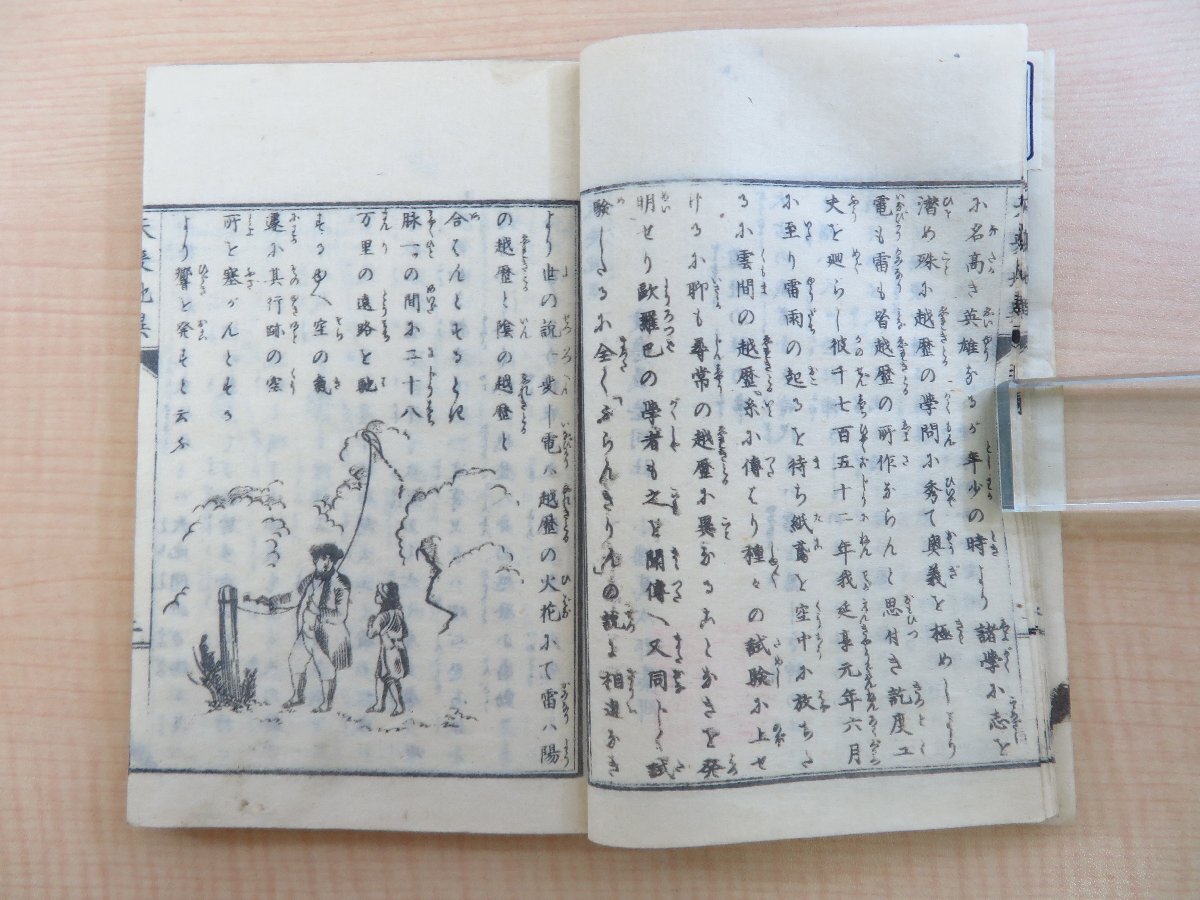 に名高き英雄なるが年少の時より諸學に志を
潜め殊に越歴の學問に秀て奥義を極めしより
電も雷も皆越歴の所作ならんと思付き説度工
夫を廻らし彼千七百五十二年我延享元年六月
に至り雷雨の起るを待ち紙鳶を空中に放ちた
るに雲間の越歴糸に傳はり種々の試験に上せ
けるに聊も尋常の越歴に異なることなきを発
明せり歐羅巴の學者も之を聞傳へ又同じく試
験したるに全くふらんきりんの説と相違なき
より世の説一変し電ハ越歴の火花にて雷ハ陽
の越歴と陰の越歴と
合はんとするとき
脉一の間に二十八
万里の遠路を馳
するゆへ空の氣
遽に其行跡の空
所を塞がんとする
より響を発すと云ふ
天変地異